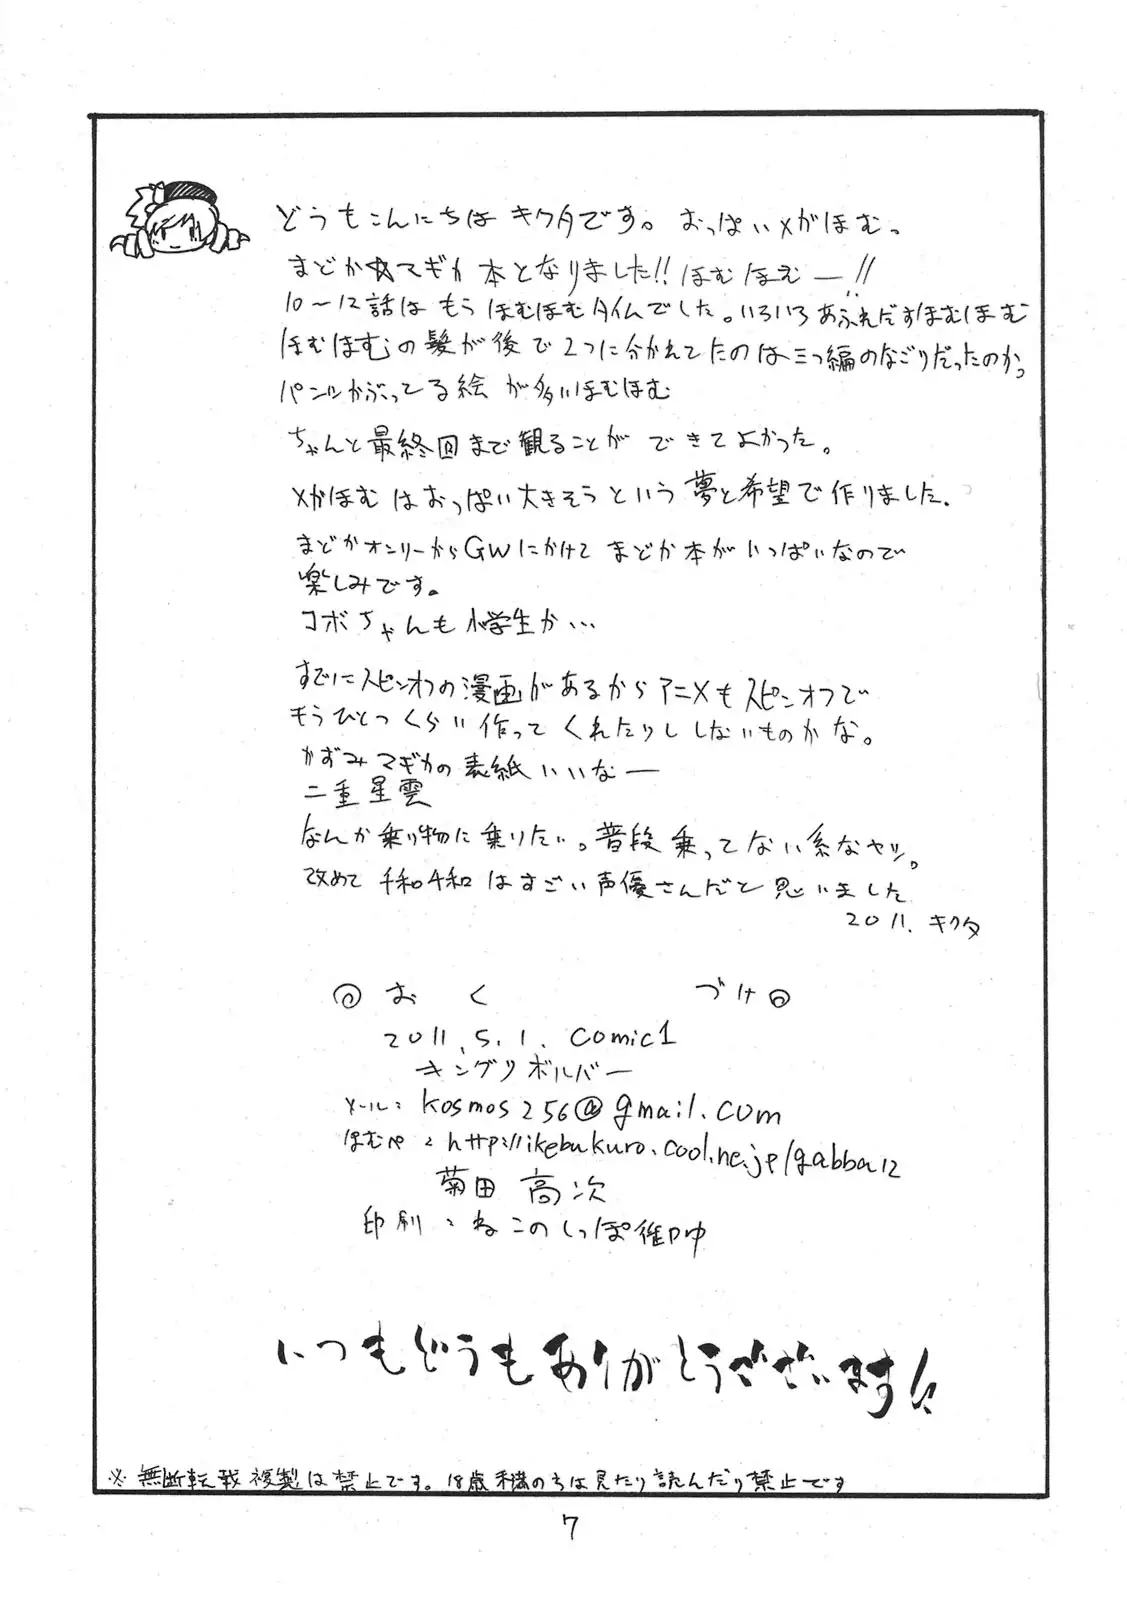 どうもこんにちは キクタです。 おっぱいメガほむっ
まどか☆マギカ 本となりました!! ほむほえー!!
10～12話は もう ほむほむタイムでした。いろいろあふれだすほむほむ
ほむほむの髪が後で2つに分かれてたのは三つ編のなごりだったのかっ
パンツかぶってる絵 が多いほむほむ
ちゃんと最終回まで観ることが できてよかった。
メガほむ はおっぱい大きそう という 夢と希望で 作りました.
まどかオンリーからGWにかけて まどか本が いっぱいなので
楽しみです。
コボちゃんも 小学生か…
すでにスピンオフの漫画があるから アニメもスピンオフで
もうひとつくらい 作って くれたりし しないものかな。
かずみマギカの表紙 いいなー
二重星雲
なんか乗り物に乗りたい。普段 乗ってない系なヤツ。
改めて 千和千和 はすごい声優さんだと 思いました
2011. キクタ
◎ おく づけ◎
2011.5.1. comic1
キングリボルバー
メール: kosmos256@gmail.com
ほむぺ: http://ikebukuro.cool.ne.jp/gabba12
菊田 高次
印刷: ねこのしっぽ
いつもどうもありがとうございます
※無断転載複製は禁止です。18歳未満のちは見たり読んだり禁止です
7